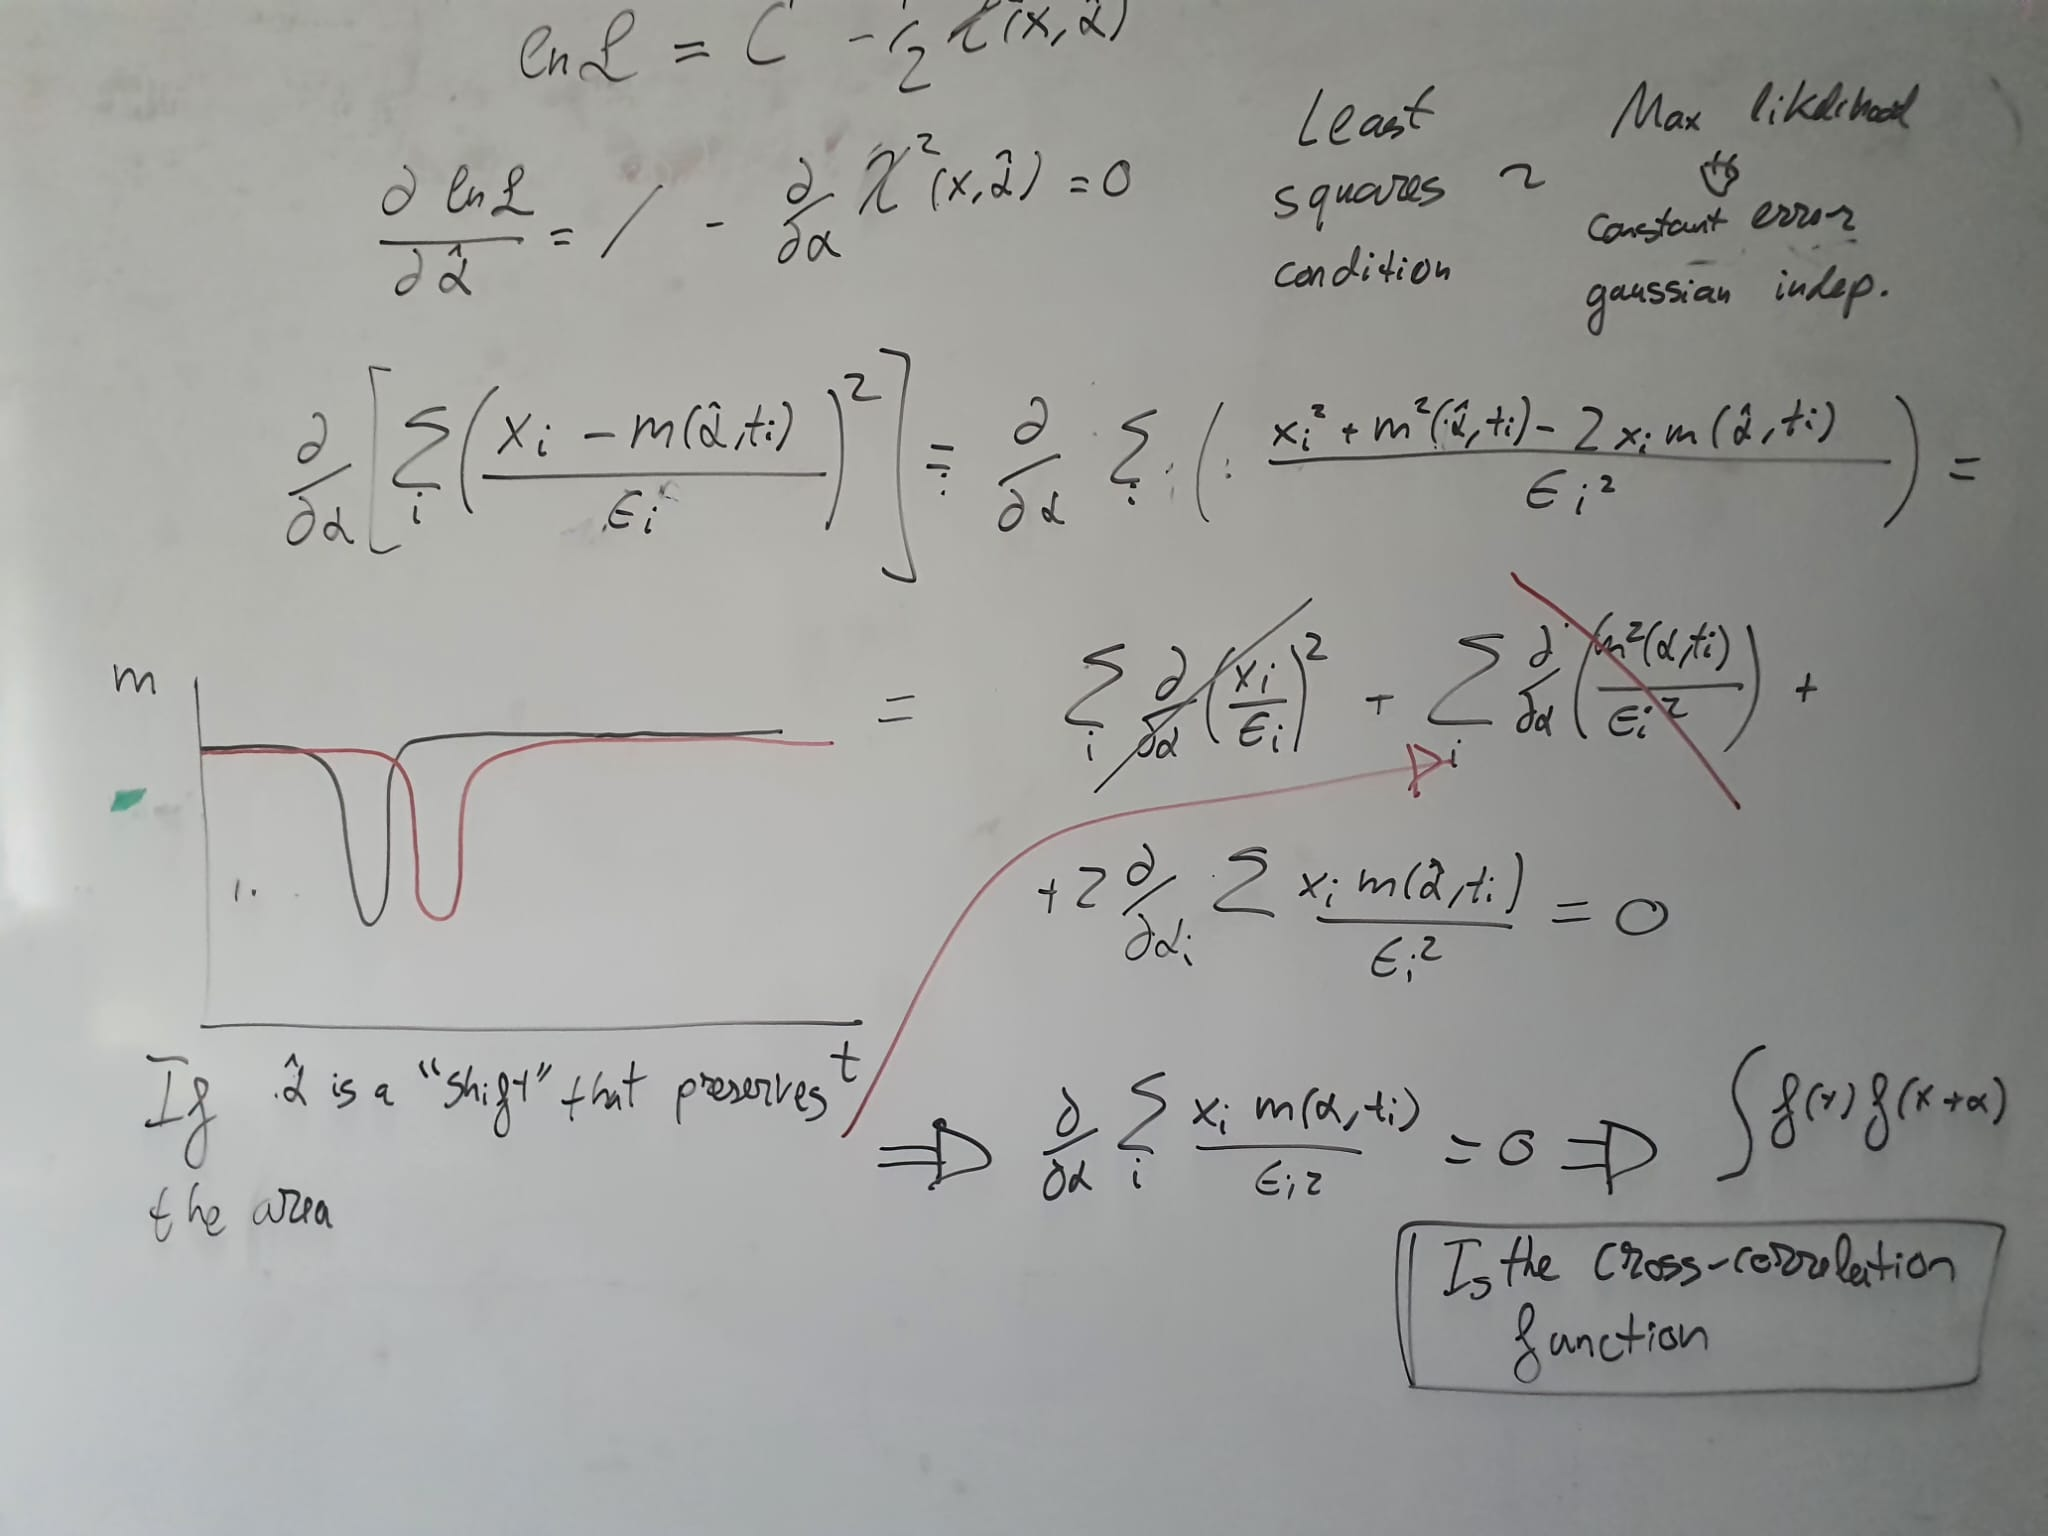 ln ℒ = C - 1/2 χ²(x, α̂)
∂ ln ℒ / ∂ α̂ = / - ∂/∂α χ²(x, α̂) = 0
Least squares condition ~ Max likelihood
⇓
constant error
gaussian indep.
∂/∂α [ Σ_i ( (x_i - m(α̂, t_i)) / ϵ_i )² ] = ∂/∂α Σ_i ( (x_i² + m²(α̂, t_i) - 2 x_i m(α̂, t_i)) / ϵ_i² ) =
= Σ_i ∂/∂α (x_i / ϵ_i)² + Σ_i ∂/∂α ( m²(α, t_i) / ϵ_i² ) +
+ 2 ∂/∂α_i Σ x_i m(α̂, t_i) / ϵ_i² = 0
m
t
If α̂ is a "shift" that preserves
the area
⇒ ∂/∂α Σ_i x_i m(α, t_i) / ϵ_i² = 0 ⇒ ∫ f(x) f(x+α)
Is the cross-correlation
function